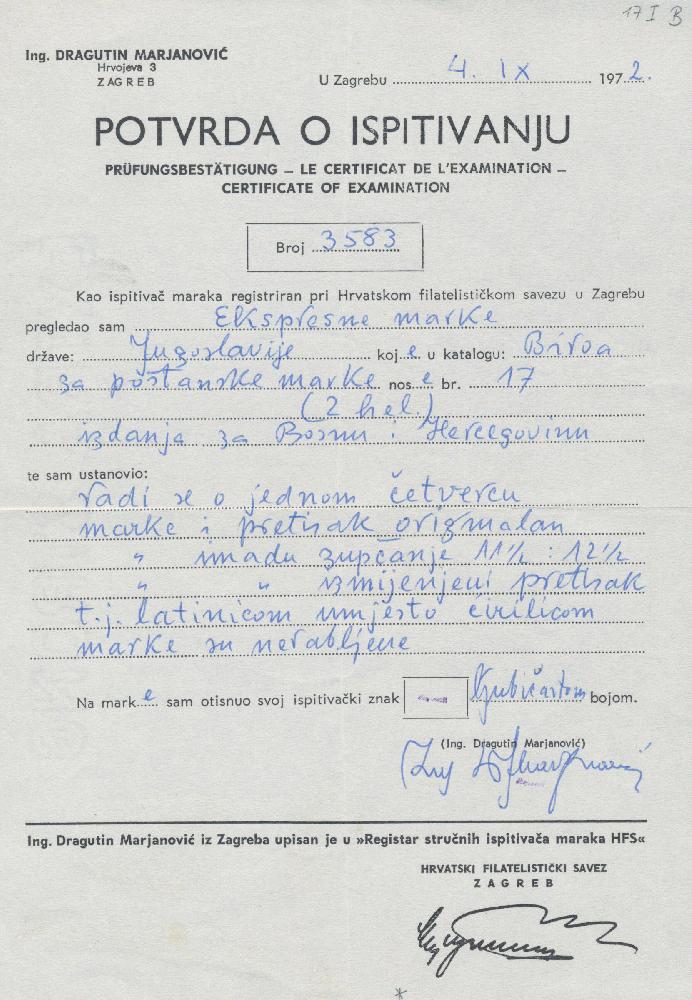 17 I B
Ing. DRAGUTIN MARJANOVIĆ
Hrvojeva 3
ZAGREB
U Zagrebu 4. IX 1972.
POTVRDA O ISPITIVANJU
PRÜFUNGSBESTÄTIGUNG — LE CERTIFICAT DE L'EXAMINATION —
CERTIFICATE OF EXAMINATION
Broj 3583
Kao ispitivač maraka registriran pri Hrvatskom filatelističkom savezu u Zagrebu
pregledao sam Ekspresne marke
države: Jugoslavije koje u katalogu:
za poštanske marke nose br. 17
(2 hel.)
izdanja za Bosnu i Hercegovinu
te sam ustanovio:
radi se o jednom četvercu
marke i pretisak originalan
" imadu zupčanje 11½ : 12½
" " izmijenjeni pretisak
t.j. latinicom umjesto ćirilicom
marke su nerabljene
Na marke sam otisnuo svoj ispitivački znak ljubičastom bojom.
(Ing. Dragutin Marjanović)
Ing. Dragutin Marjanović iz Zagreba upisan je u »Registar stručnih ispitivača maraka HFS«
HRVATSKI FILATELISTIČKI SAVEZ
ZAGREB